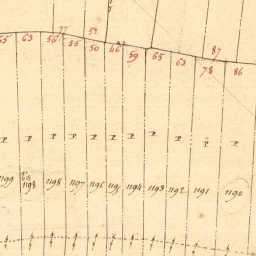 77 53 87
55 63 56 55 50 46 59 65 63 78 86
P P P P P P P P P P
1199 1198 1198 1197 1196 1195 1194 1193 1192 1191 1190